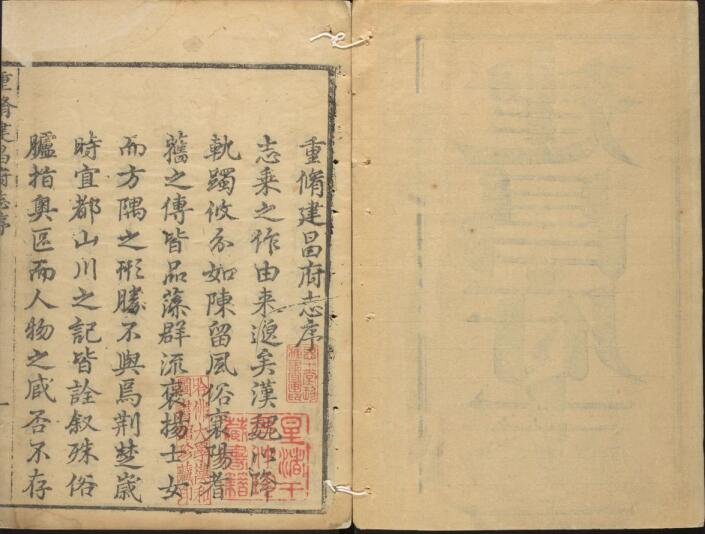 重脩建昌府志序
志乗之作由来邈矣漢魏以降
軌躅攸分如陳留風俗襄陽耆
舊之傳皆品藻群流褒揚士女
而方隅之形勝不與焉荆楚歲
時宜都山川之記皆詮叙殊俗
臚指奥區而人物之臧否不存
重脩建昌府志序
一
星渚干
藏書籍
建昌府志